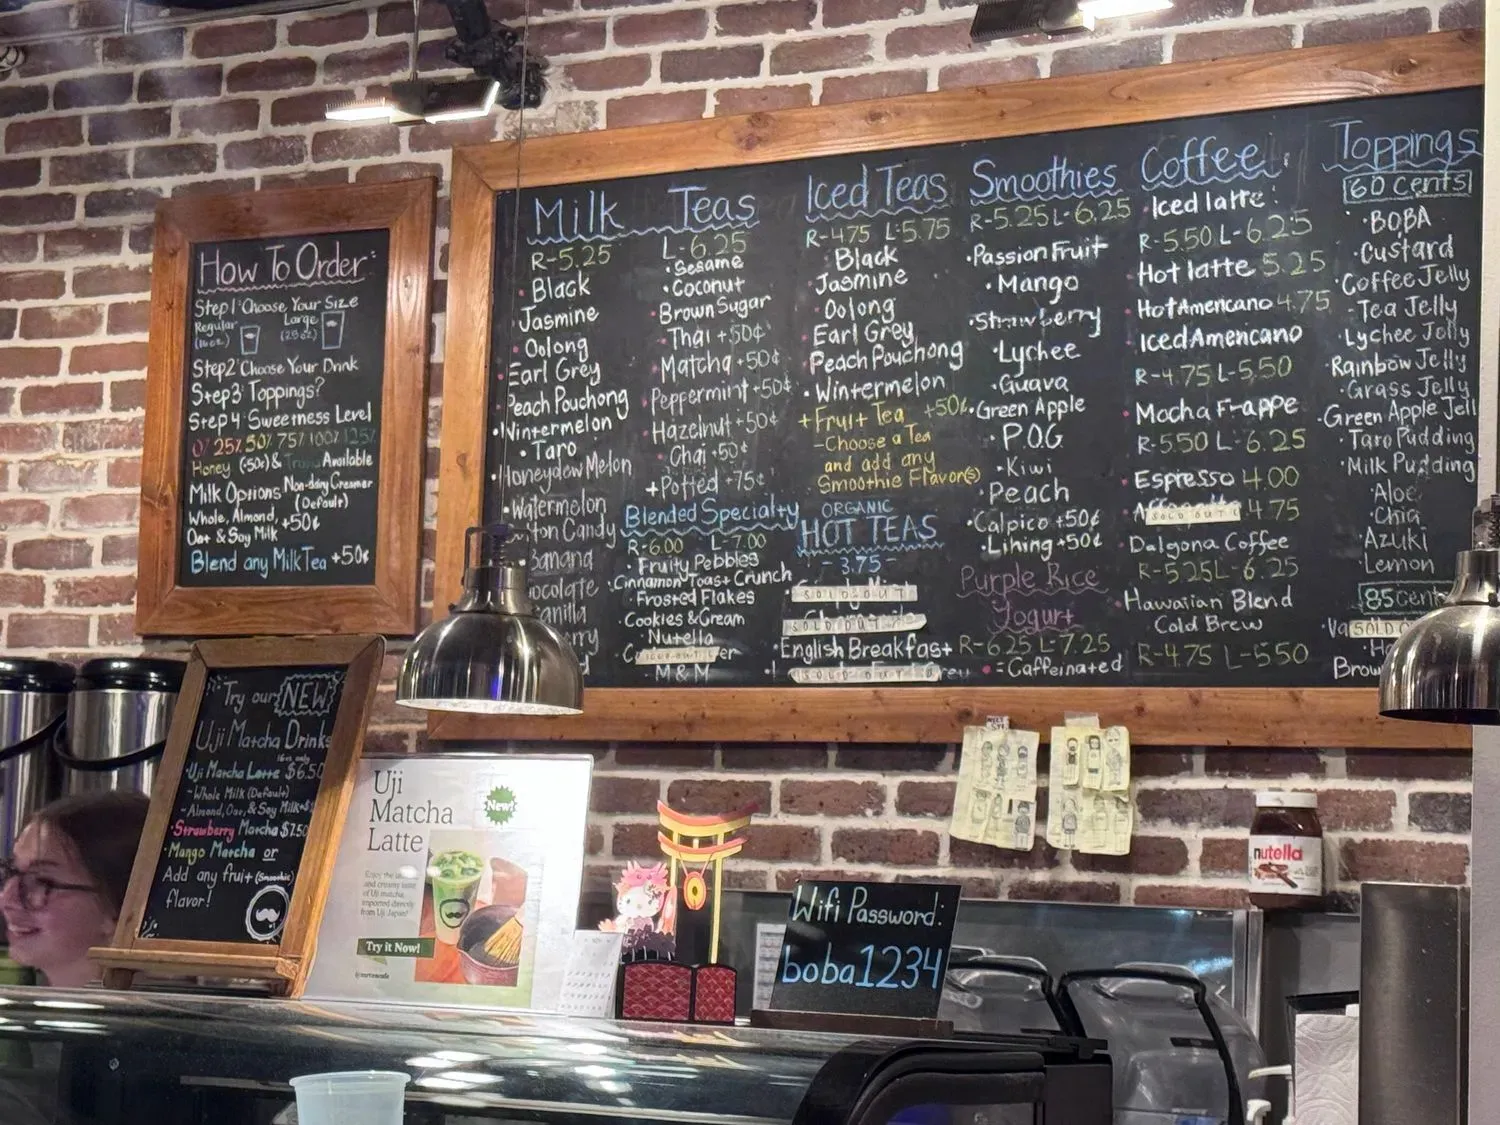 How To Order:
Step 1 Choose Your Size
Regular Large
(16oz.)
Step 2 Choose Your Drink
Step 3 Toppings?
Step 4 Sweetness Level
0% 25% 50% 75% 100% 125%
Honey (+50¢) & Available
Milk Options Non-dairy Creamer
(Default)
Whole, Almond, +50¢
Oat & Soy Milk
Blend any Milk Tea +50¢
Milk Teas
R-5.25 L-6.25
Black
Jasmine
Oolong
Earl Grey
Peach Pouchong
Wintermelon
Taro
Honeydew Melon
Watermelon
Candy
Banana
Sesame
Coconut
Brown Sugar
Thai +50¢
Matcha +50¢
Peppermint +50¢
Hazelnut +50¢
Chai +50¢
+Potted +75¢
Blended Specialty
R-6.00 L-7.00
Fruity Pebbles
Cinnamon Toast Crunch
Frosted Flakes
Cookies & Cream
Nutella
SOLD OUT
M & M
Iced Teas
R-4.75 L-5.75
Black
Jasmine
Oolong
Earl Grey
Peach Pouchong
Wintermelon
+Fruit Tea +50¢
-Choose a Tea
and add any
Smoothie Flavor(s)
ORGANIC
HOT TEAS
-3.75-
SOLD OUT
SOLD OUT
English Breakfast
SOLD OUT
Smoothies
R-5.25 L-6.25
Passion Fruit
Mango
Strawberry
Lychee
Guava
Green Apple
P.O.G
Kiwi
Peach
Calpico +50¢
Lihing +50¢
Purple Rice
Yogurt
R-6.25 L-7.25
= Caffeinated
Coffee
Iced latte:
R-5.50 L-6.25
Hot latte 5.25
Hot Americano 4.75
Iced Americano
R-4.75 L-5.50
Mocha Frappe
R-5.50 L-6.25
Espresso 4.00
SOLD OUT 4.75
Dalgona Coffee
R-5.25 L-6.25
Hawaiian Blend
Cold Brew
R-4.75 L-5.50
Toppings
60 Cents
BOBA
Custard
Coffee Jelly
Tea Jelly
Lychee Jelly
Rainbow Jelly
Grass Jelly
Green Apple Jell
Taro Pudding
Milk Pudding
Aloe
Chia
Azuki
Lemon
85 Cent
SOLD O
Brow
Try our NEW
Uji Matcha Drinks
16oz only
Uji Matcha Latte $6.50
-Whole Milk (Default)
-Almond, Oat, & Soy Milk
Strawberry Matcha $7.50
Mango Matcha or
Add any fruit (Smoothie)
flavor!
Uji
Matcha
Latte
New!
Enjoy the
and creamy taste
of Uji matcha
imported directly
from Uji Japan!
Try it Now!
Wifi Password:
boba1234
nutella